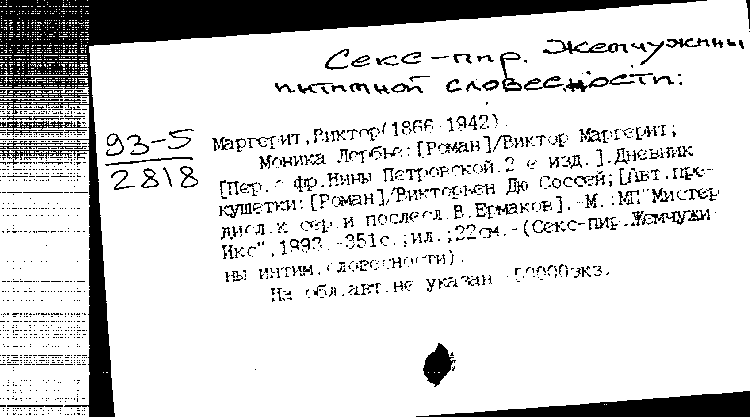 Секс-пир. Жемчужины
интимной словесности:
93-5
2818
Маргерит, Виктор(1866-1942).
Моника Лербье: [Роман]/Виктор Маргерит;
[Пер. с фр. Нины Петровской. 2-е изд.]. Дневник
кушетки: [Роман]/Викторьен Дю Соссей; [Авт. пре-
дисл. к сер. и послесл. В. Ермаков]. -М.: МП"Мистер
Икс", 1993. -351с.; ил.; 22см. -(Секс-пир. Жемчужи-
ны интим. словесности).
На обл. авт. не указан 50000экз.